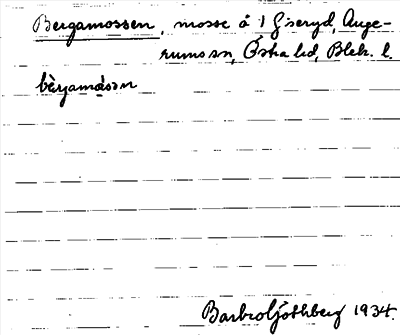 Bergamossen, mosse å 1 Giseryd, Auge-
rums sn, Östra hd, Blek. l.
bèrgamå̀sən
Barbro Götberg 1934.